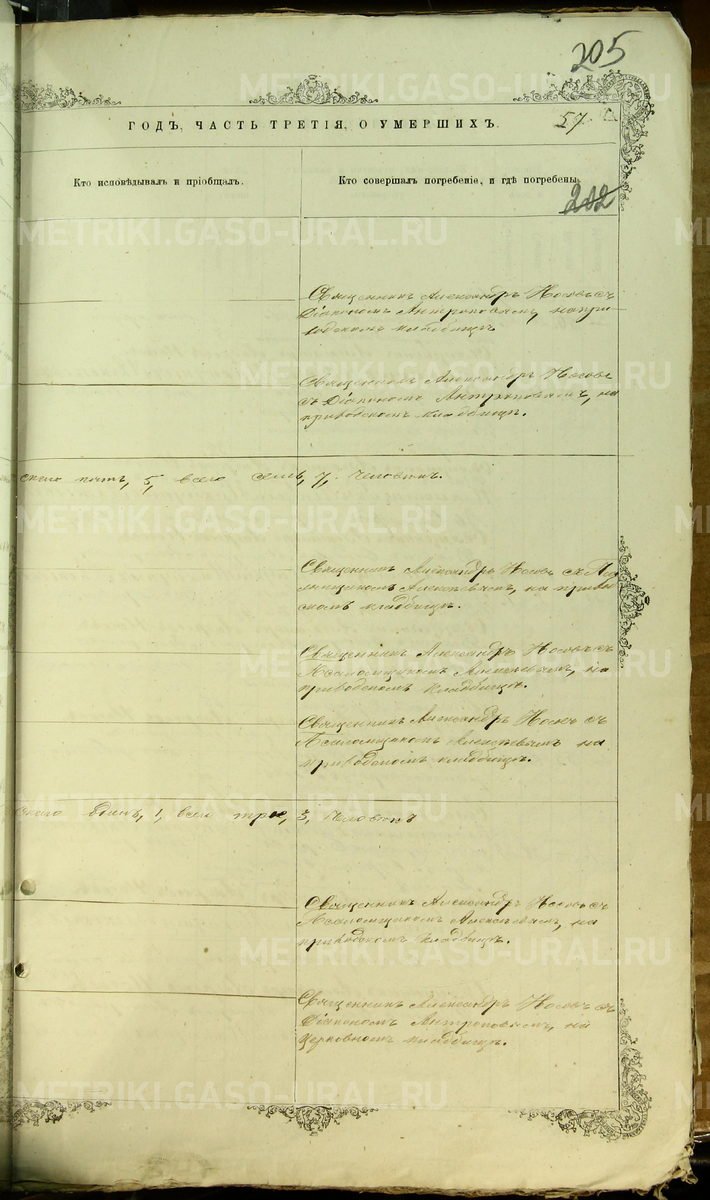 205
ГОДЪ, ЧАСТЬ ТРЕТІЯ, О УМЕРШИХЪ.
57
Кто исповѣдывалъ и пріобщалъ.
Кто совершалъ погребеніе, и гдѣ погребены.
212
Священникъ Александръ Носовъ съ
Діакономъ Антроповымъ, на при-
ходскомъ кладбищѣ.
Священникъ Александръ Носовъ
съ Діакономъ Антроповымъ, на
приходскомъ кладбищѣ.
скаго пять, 5, всего семь, 7, человѣкъ.
Священникъ Александръ Носовъ съ
на
кладбищѣ.
Священникъ Александръ Носовъ съ
Псаломщикомъ Алексѣевымъ, на
приходскомъ кладбищѣ.
Священникъ Александръ Носовъ съ
Псаломщикомъ Алексѣевымъ на
приходскомъ кладбищѣ.
скаго одинъ, 1, всего три, 3, человѣка
Священникъ Александръ Носовъ съ
Псаломщикомъ Алексѣевымъ, на
приходскомъ кладбищѣ.
Священникъ Александръ Носовъ съ
Діакономъ Антроповымъ, на
церковномъ кладбищѣ.
METRIKI.GASO-URAL.RU